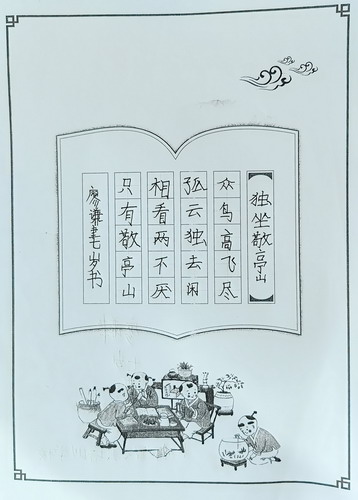 独坐敬亭山
众鸟高飞尽
孤云独去闲
相看两不厌
只有敬亭山
廖谦聿七岁书